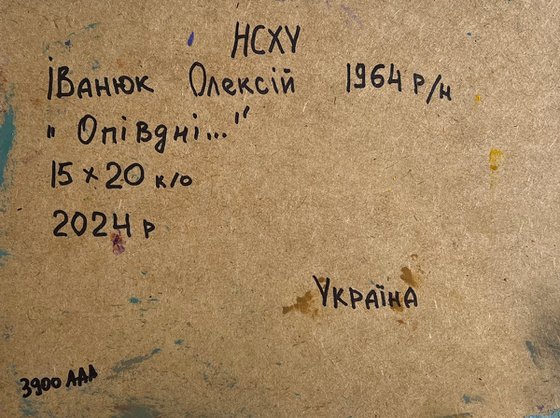 НСХУ
Іванюк Олексій 1964 р/н
"Опівдні..."
15 × 20 к/о
2024 р
Україна
3900 ААА